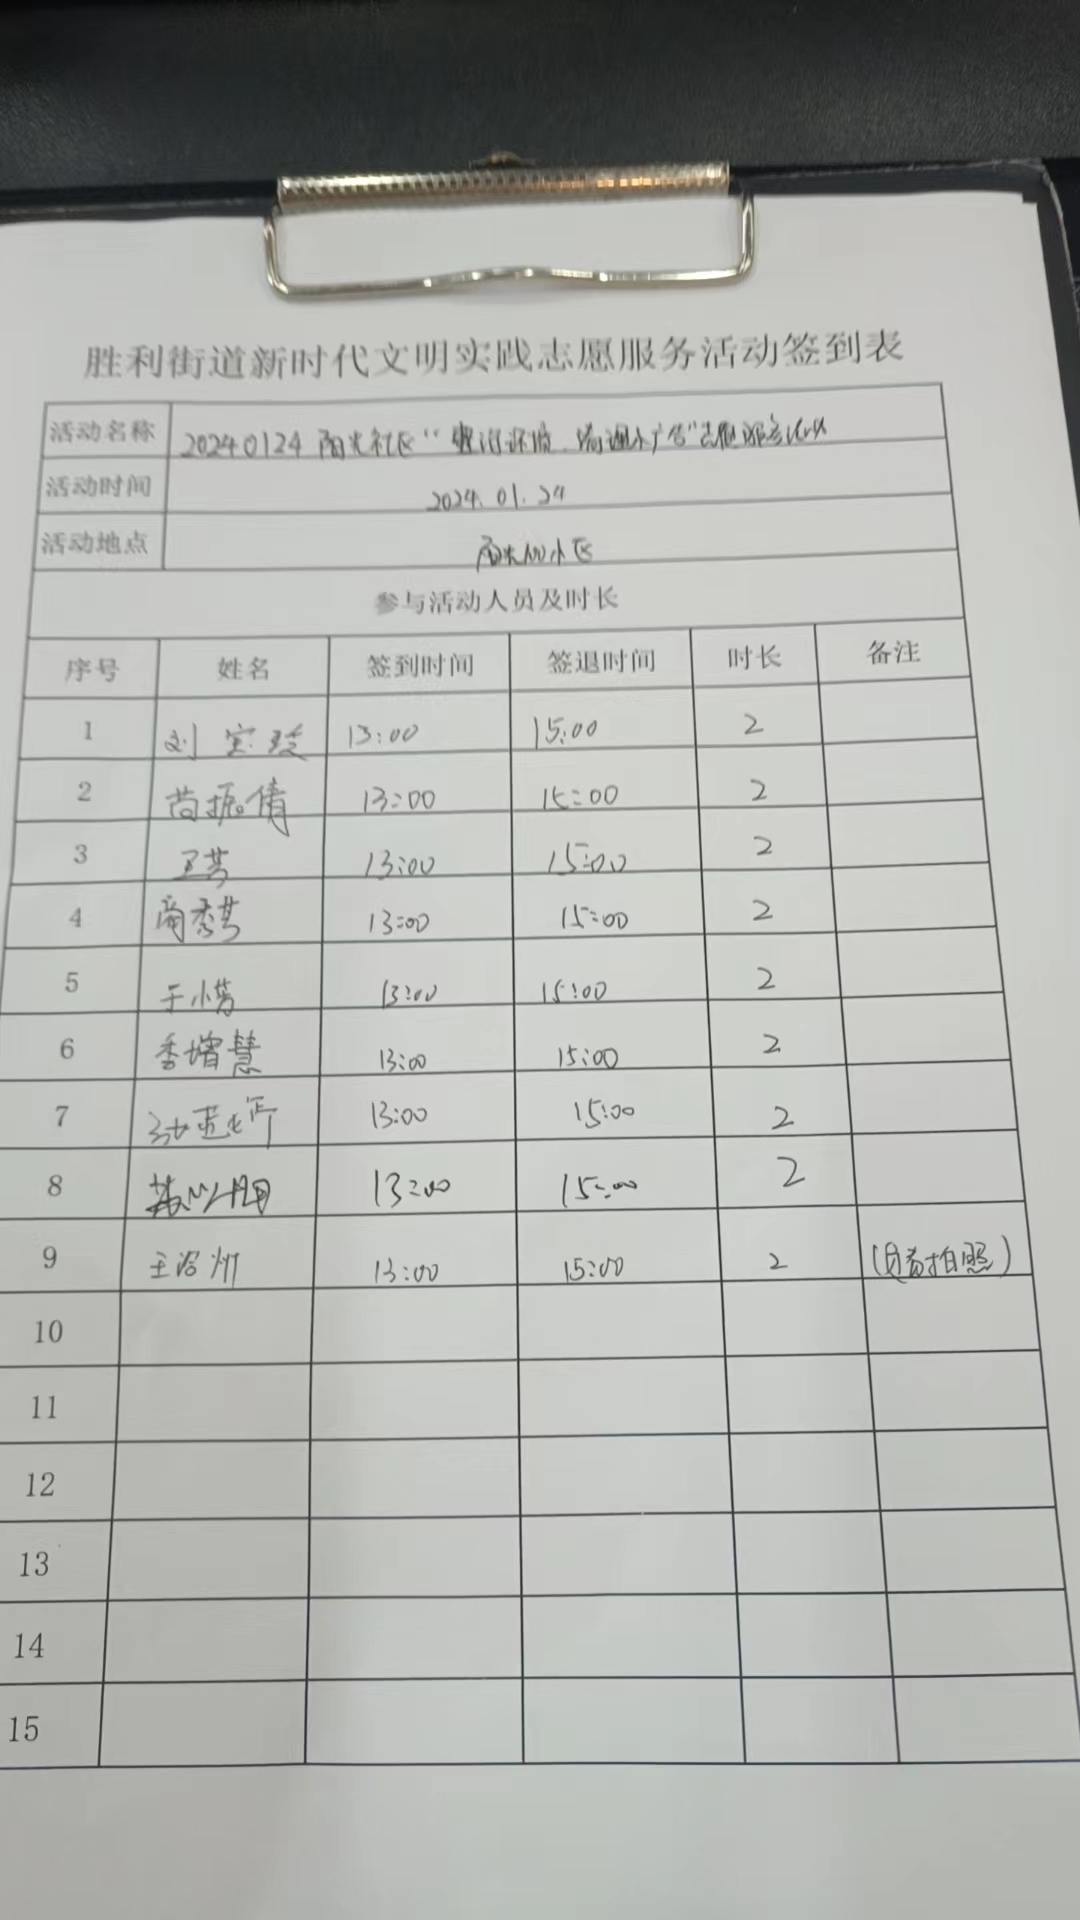 胜利街道新时代文明实践志愿服务活动签到表
活动名称 20240124 阳光社区“ 环境 清理小广告”志愿服务活动
活动时间 2024.01.24
活动地点 阳光 小区
参与活动人员及时长
序号 姓名 签到时间 签退时间 时长 备注
1 刘宝玲 13:00 15:00 2
2 苗振倩 13:00 15:00 2
3 王芳 13:00 15:00 2
4 商秀芳 13:00 15:00 2
5 于小芳 13:00 15:00 2
6 季增慧 13:00 15:00 2
7 13:00 15:00 2
8 13:00 15:00 2
9 王浴州 13:00 15:00 2 (负责拍照)
10
11
12
13
14
15